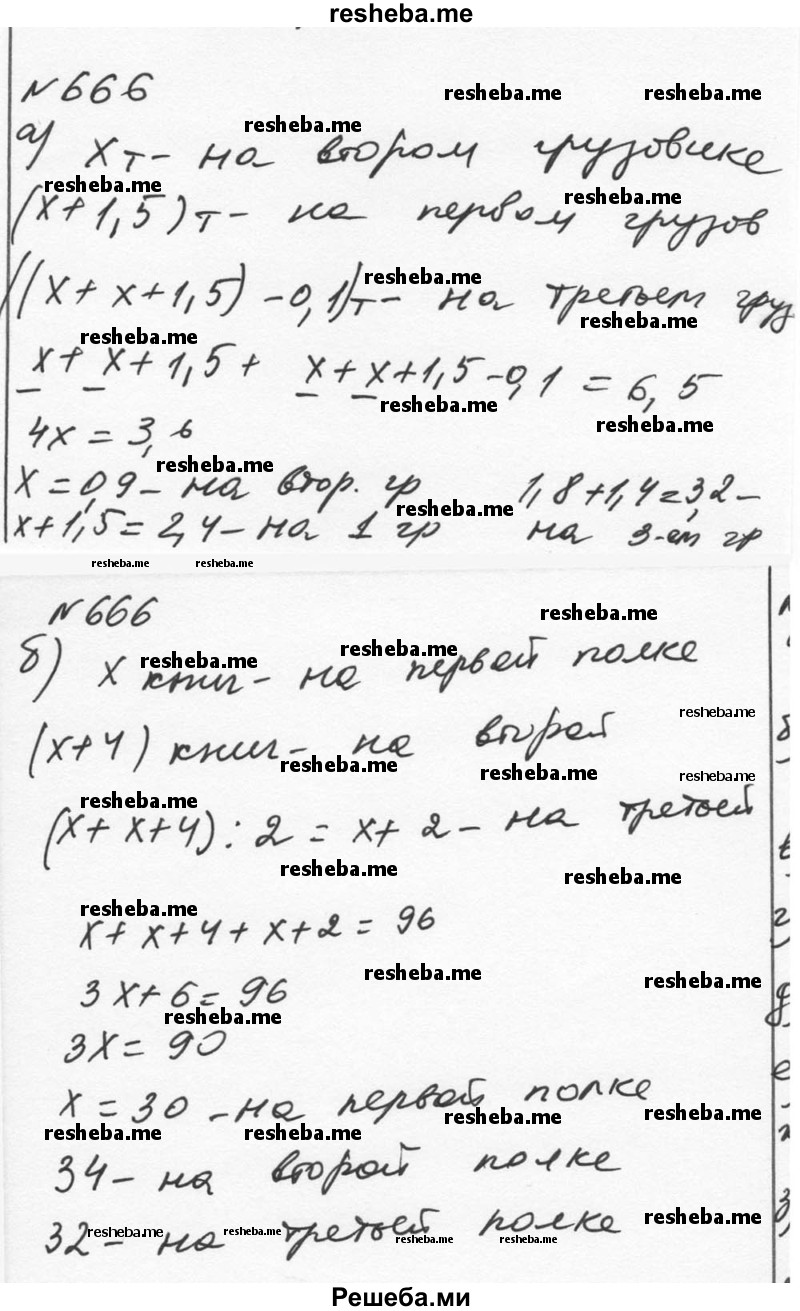 resheba.me
№666
resheba.me resheba.me
resheba.me
а) x т – на втором грузовике
resheba.me resheba.me
(x+1,5) т – на первом грузов
resheba.me
((x+x+1,5)-0,1) т – на третьем груз
resheba.me resheba.me
x+x+1,5+ x+x+1,5-0,1 = 6,5
resheba.me
resheba.me
4x = 3,6
resheba.me
x=0,9 – на втор. гр 1,8+1,4=3,2 –
resheba.me
x+1,5=2,4 – на 1 гр на 3-ем гр
resheba.me resheba.me
№666
resheba.me
б) x книг – на первой полке
resheba.me resheba.me
resheba.me
(x+4) книг – на второй
resheba.me resheba.me resheba.me
resheba.me
(x+x+4):2 = x+2 – на третьей
resheba.me resheba.me
resheba.me
x+x+4+x+2=96
resheba.me resheba.me
3x+6=96
resheba.me
3x=90
x=30 – на первой полке
resheba.me resheba.me
resheba.me resheba.me
34 – на второй полке
resheba.me
32 – на третьей полке
resheba.me resheba.me resheba.me resheba.me
Решеба.ми